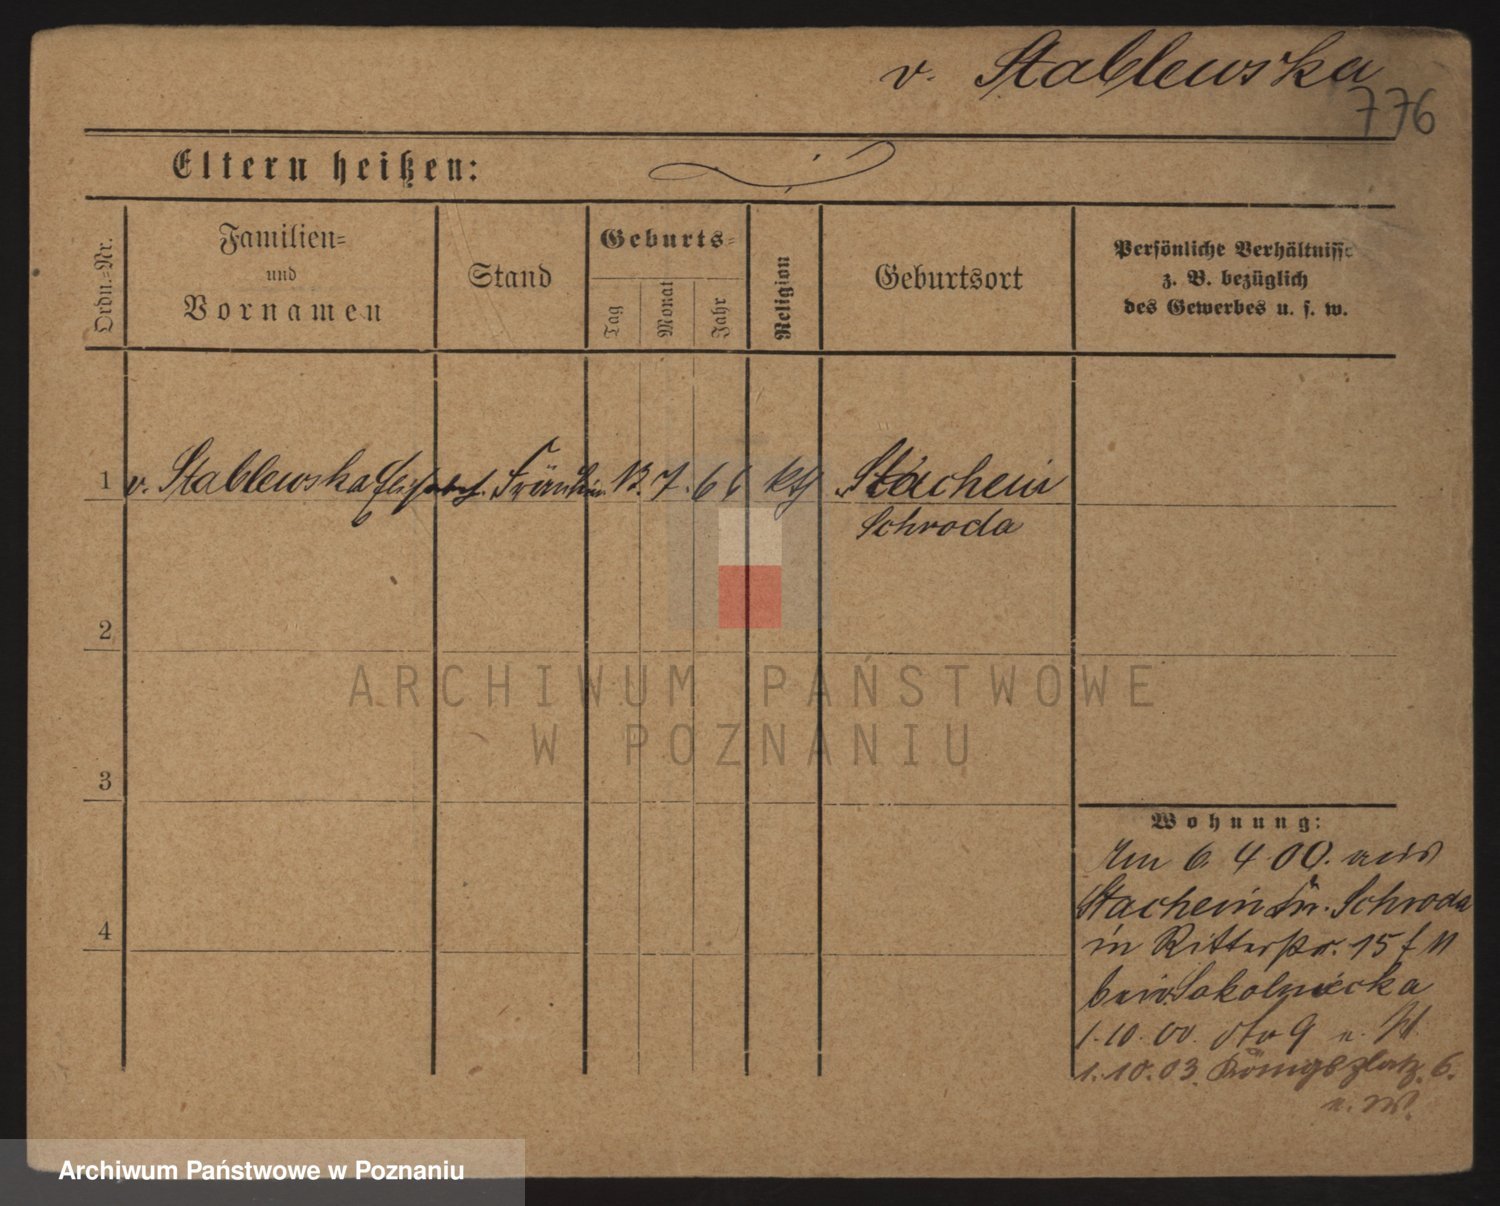 v. Stablewska
776
Eltern heißen:
Ordn.-Nr.
Familien-
und
Vornamen
Stand
Geburts-
Tag
Monat
Jahr
Religion
Geburtsort
Persönliche Verhältnisse
z. B. bezüglich
des Gewerbes u. s. w.
1 v. Stablewska Elisabeth. Fräulein 13. 7. 66 kth Stachein
Schroda
2
3
4
Wohnung:
Am 6. 4 00. aus
Stachein Kr. Schroda
in Ritterstr. 15
bei v. Sokolnicka
1.10.00. dto 9
1.10.03. Königsplatz. 6.
ARCHIWUM PAŃSTWOWE
W POZNANIU
Archiwum Państwowe w Poznaniu